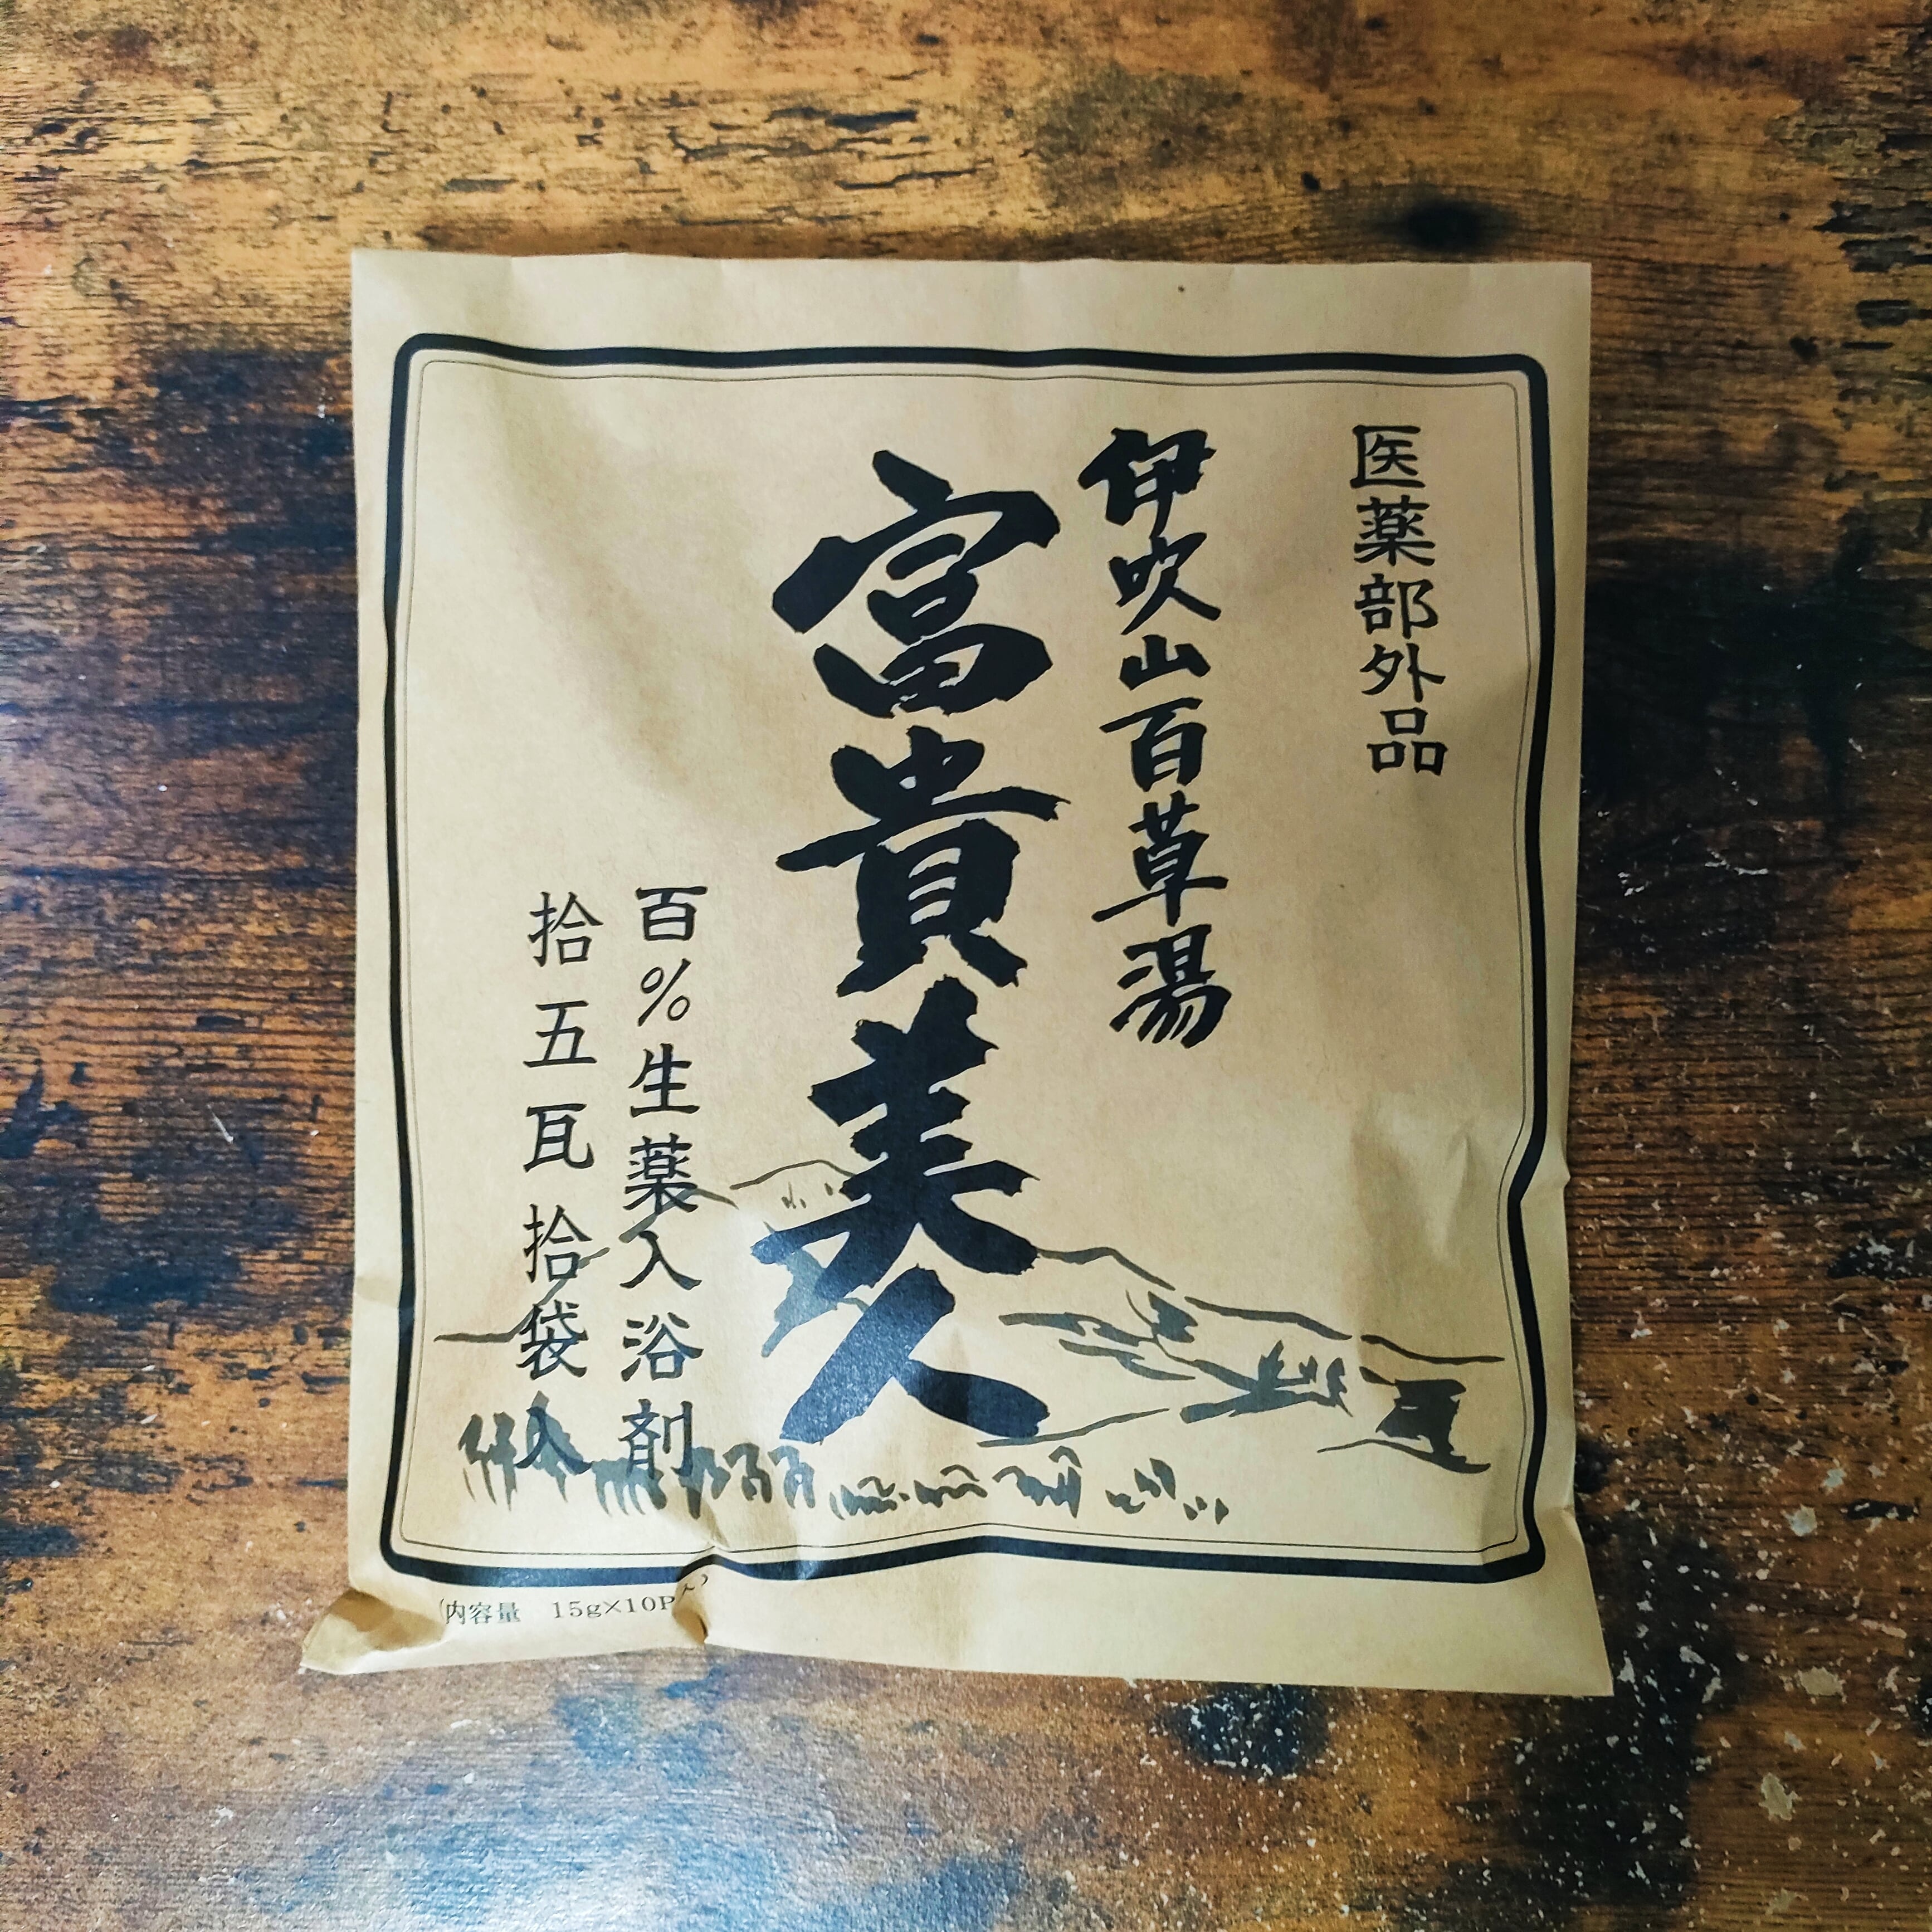 医薬部外品
伊吹山百草湯
富貴美人
百%生薬入浴剤
拾五瓦拾袋入
(内容量 15g×10P入)